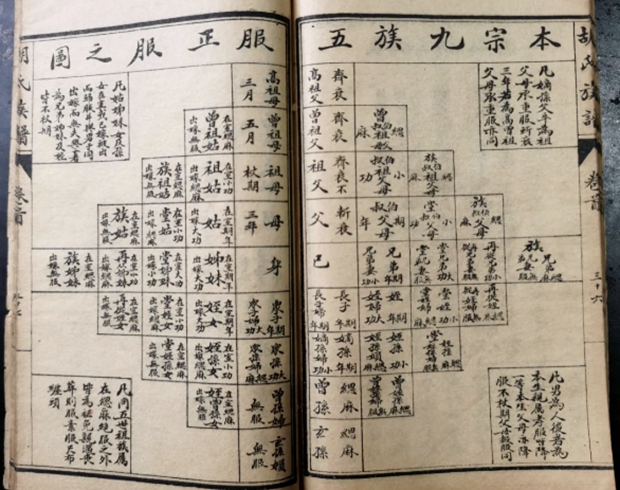 胡氏族譜
卷首
三十六
本宗九族五
服正服之圖
凡嫡孫父卒為祖
父母承重服斬衰
三年若為高曾祖
父母承重服亦同
凡男為人後者為
本生親屬孝服皆降
一等本生父母亦降
服不杖期父母報服同
高祖父 齊衰
曾祖父 齊衰
曾叔伯祖父母 緦麻
祖父 齊衰不
叔伯祖父母 小功
族叔伯祖父母 緦麻
父 斬衰
叔伯父母 期年
堂叔伯父母 小功
族叔伯父母 緦麻
己
兄弟 期年
兄弟妻 小功
堂兄弟 大功
堂兄弟妻 緦麻
再從兄弟 小功
再從兄弟妻 無服
族兄弟 緦麻
族兄弟妻 無服
長子 期年
長子婦 期年
姪 期年
姪婦 大功
堂姪 小功
堂姪婦 緦麻
再從姪 緦麻
再從姪婦 無服
嫡孫 期年
嫡孫婦 小功
姪孫 小功
姪孫婦 緦麻
堂姪孫 緦麻
堂姪孫婦 無服
曾孫 緦麻
曾姪孫 緦麻
曾姪孫婦 無服
玄孫 緦麻
高祖母 三月
曾祖母 五月
曾祖姑 在室緦麻 出嫁無服
祖母 杖期
祖姑 在室小功 出嫁緦麻
族祖姑 在室緦麻 出嫁無服
母 三年
姑 在室期年 出嫁大功
堂姑 在室小功 出嫁緦麻
族姑 在室緦麻 出嫁無服
身
姊妹 在室期年 出嫁大功
堂姊妹 在室大功 出嫁小功
再姊妹 在室小功 出嫁緦麻
族姊妹 在室緦麻 出嫁無服
眾子 期年
眾子婦 大功
姪女 在室期年 出嫁大功
堂姪女 在室小功 出嫁緦麻
再從姪女 在室緦麻 出嫁無服
眾孫 大功
眾孫婦 緦麻
姪孫女 在室小功 出嫁緦麻
堂姪孫女 在室緦麻 出嫁無服
曾孫婦 無服
曾姪孫女 在室緦麻 出嫁無服
玄孫婦 無服
凡姑姊妹女及孫
女在室或已嫁被出
而歸服並與男子同
出嫁而無夫與者
為兄弟姊妹及姪
皆不杖期
凡同五世祖族屬
在緦麻絕服之外
皆為袒免親遇喪
葬則服素服尺布
纏頭
胡氏族譜
卷首